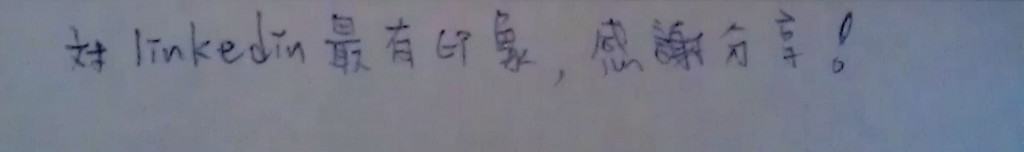 対linkedin最有印象,感謝分享!